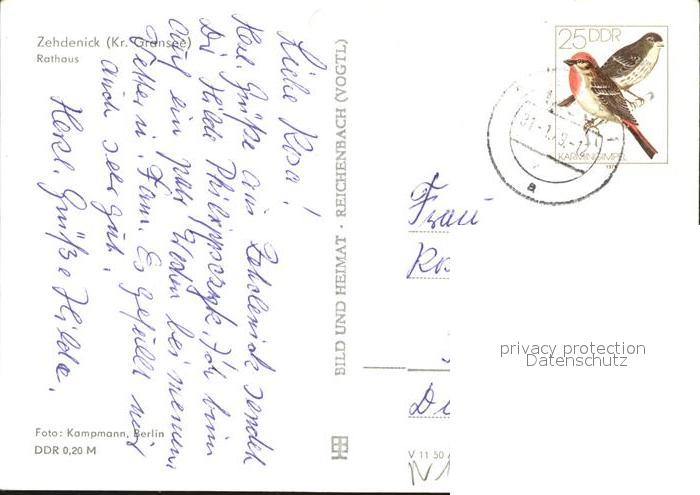 Zehdenick (Kr. Gransee)
Rathaus
Liebe Rosa!
Herl. Grüße aus Zehdenick sendet
Dir Hilde Philippczyk. Ich bin
auf ein paar Wochen bei meinem
Vetter u. Fam. Es gefällt mir
auch sehr gut.
Herzl. Grüße Hilde.
Foto: Kampmann, Berlin
DDR 0,20 M
BILD UND HEIMAT · REICHENBACH (VOGTL)
25 DDR
KARMINGIMPEL
a
Frau
privacy protection
Datenschutz
V 11 50